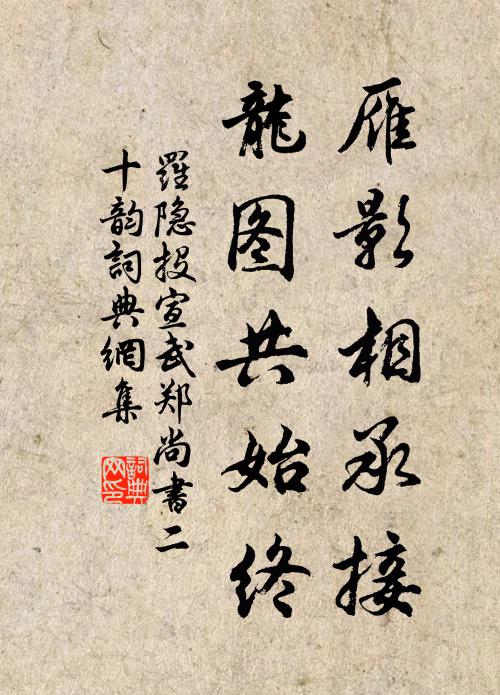 雁影相承接
龍图共始终
羅隐投宣武郑尚書二
十韵詞典網集
詞典网印